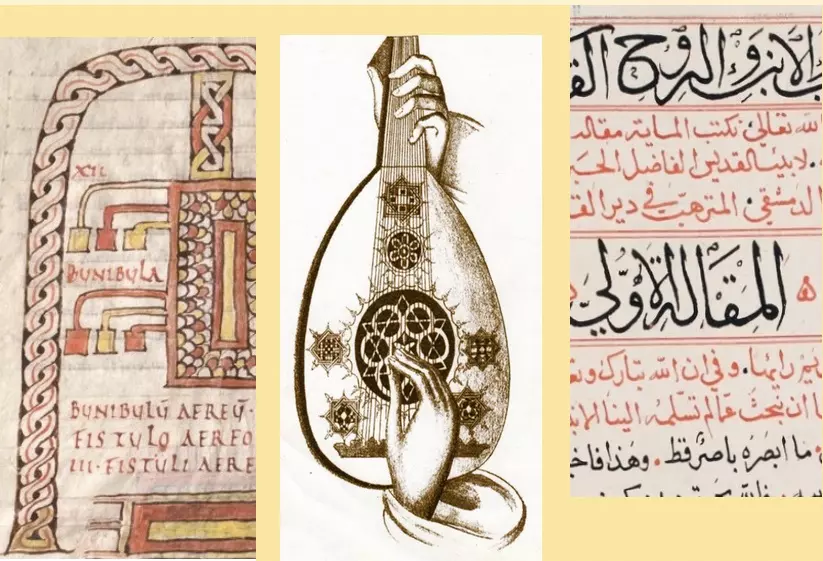 XII
BUNIBULA
BUNIBULŪ AEREŪ·
FISTULO AEREO
III·FISTULI AERE
الابن والروح
تعالى نكتب الماية مقالة
لابينا القديس الفاضل
الدمشقي. المترهب في دير
المقالة الاولى
وفي ان الله تبارك
ان نبحث عما لم تسلمه الينا
ما ابصره باصر قط. وهذا